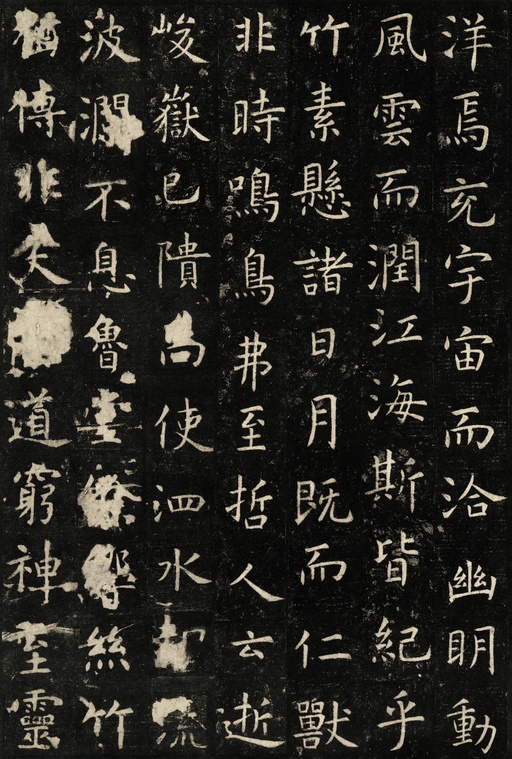 洋焉充宇宙而洽幽明動
風雲而潤江海斯皆紀乎
竹素懸諸日月既而仁獸
非時鳴鳥弗至哲人云逝
峻嶽已隤尚使泗水却流
波瀾不息魯堂餘響絲竹
猶傳非夫道窮神至靈